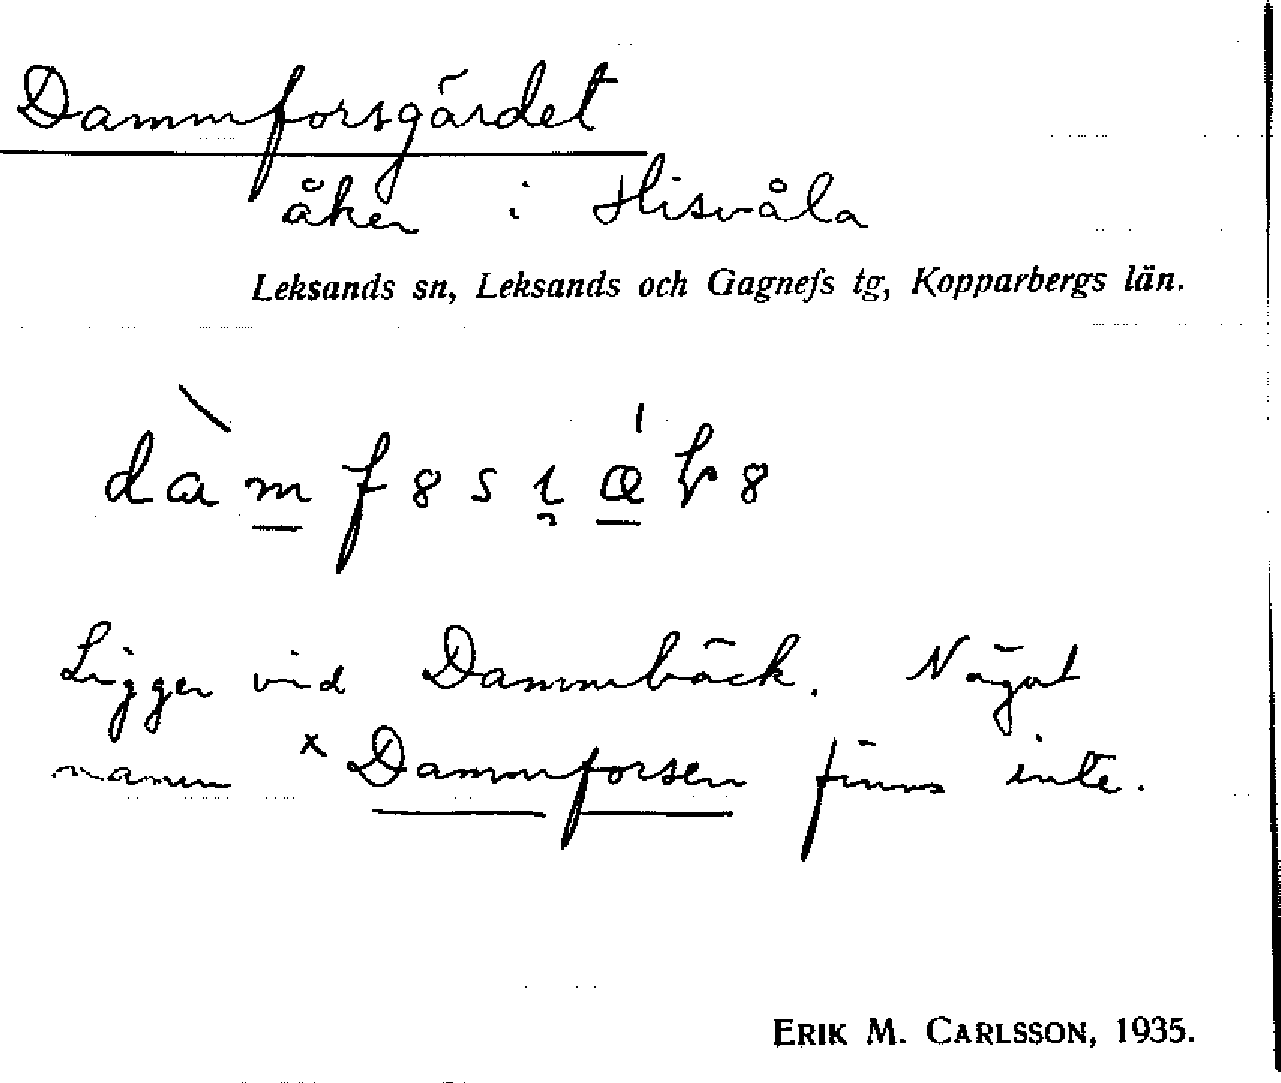 Dammforsgärdet
åker i Hisvåla
Leksands sn, Leksands och Gagnefs tg, Kopparbergs län.
Ligger vid Dammbäck. Något
namn ˣDammforsen finns inte.
ERIK M. CARLSSON, 1935.